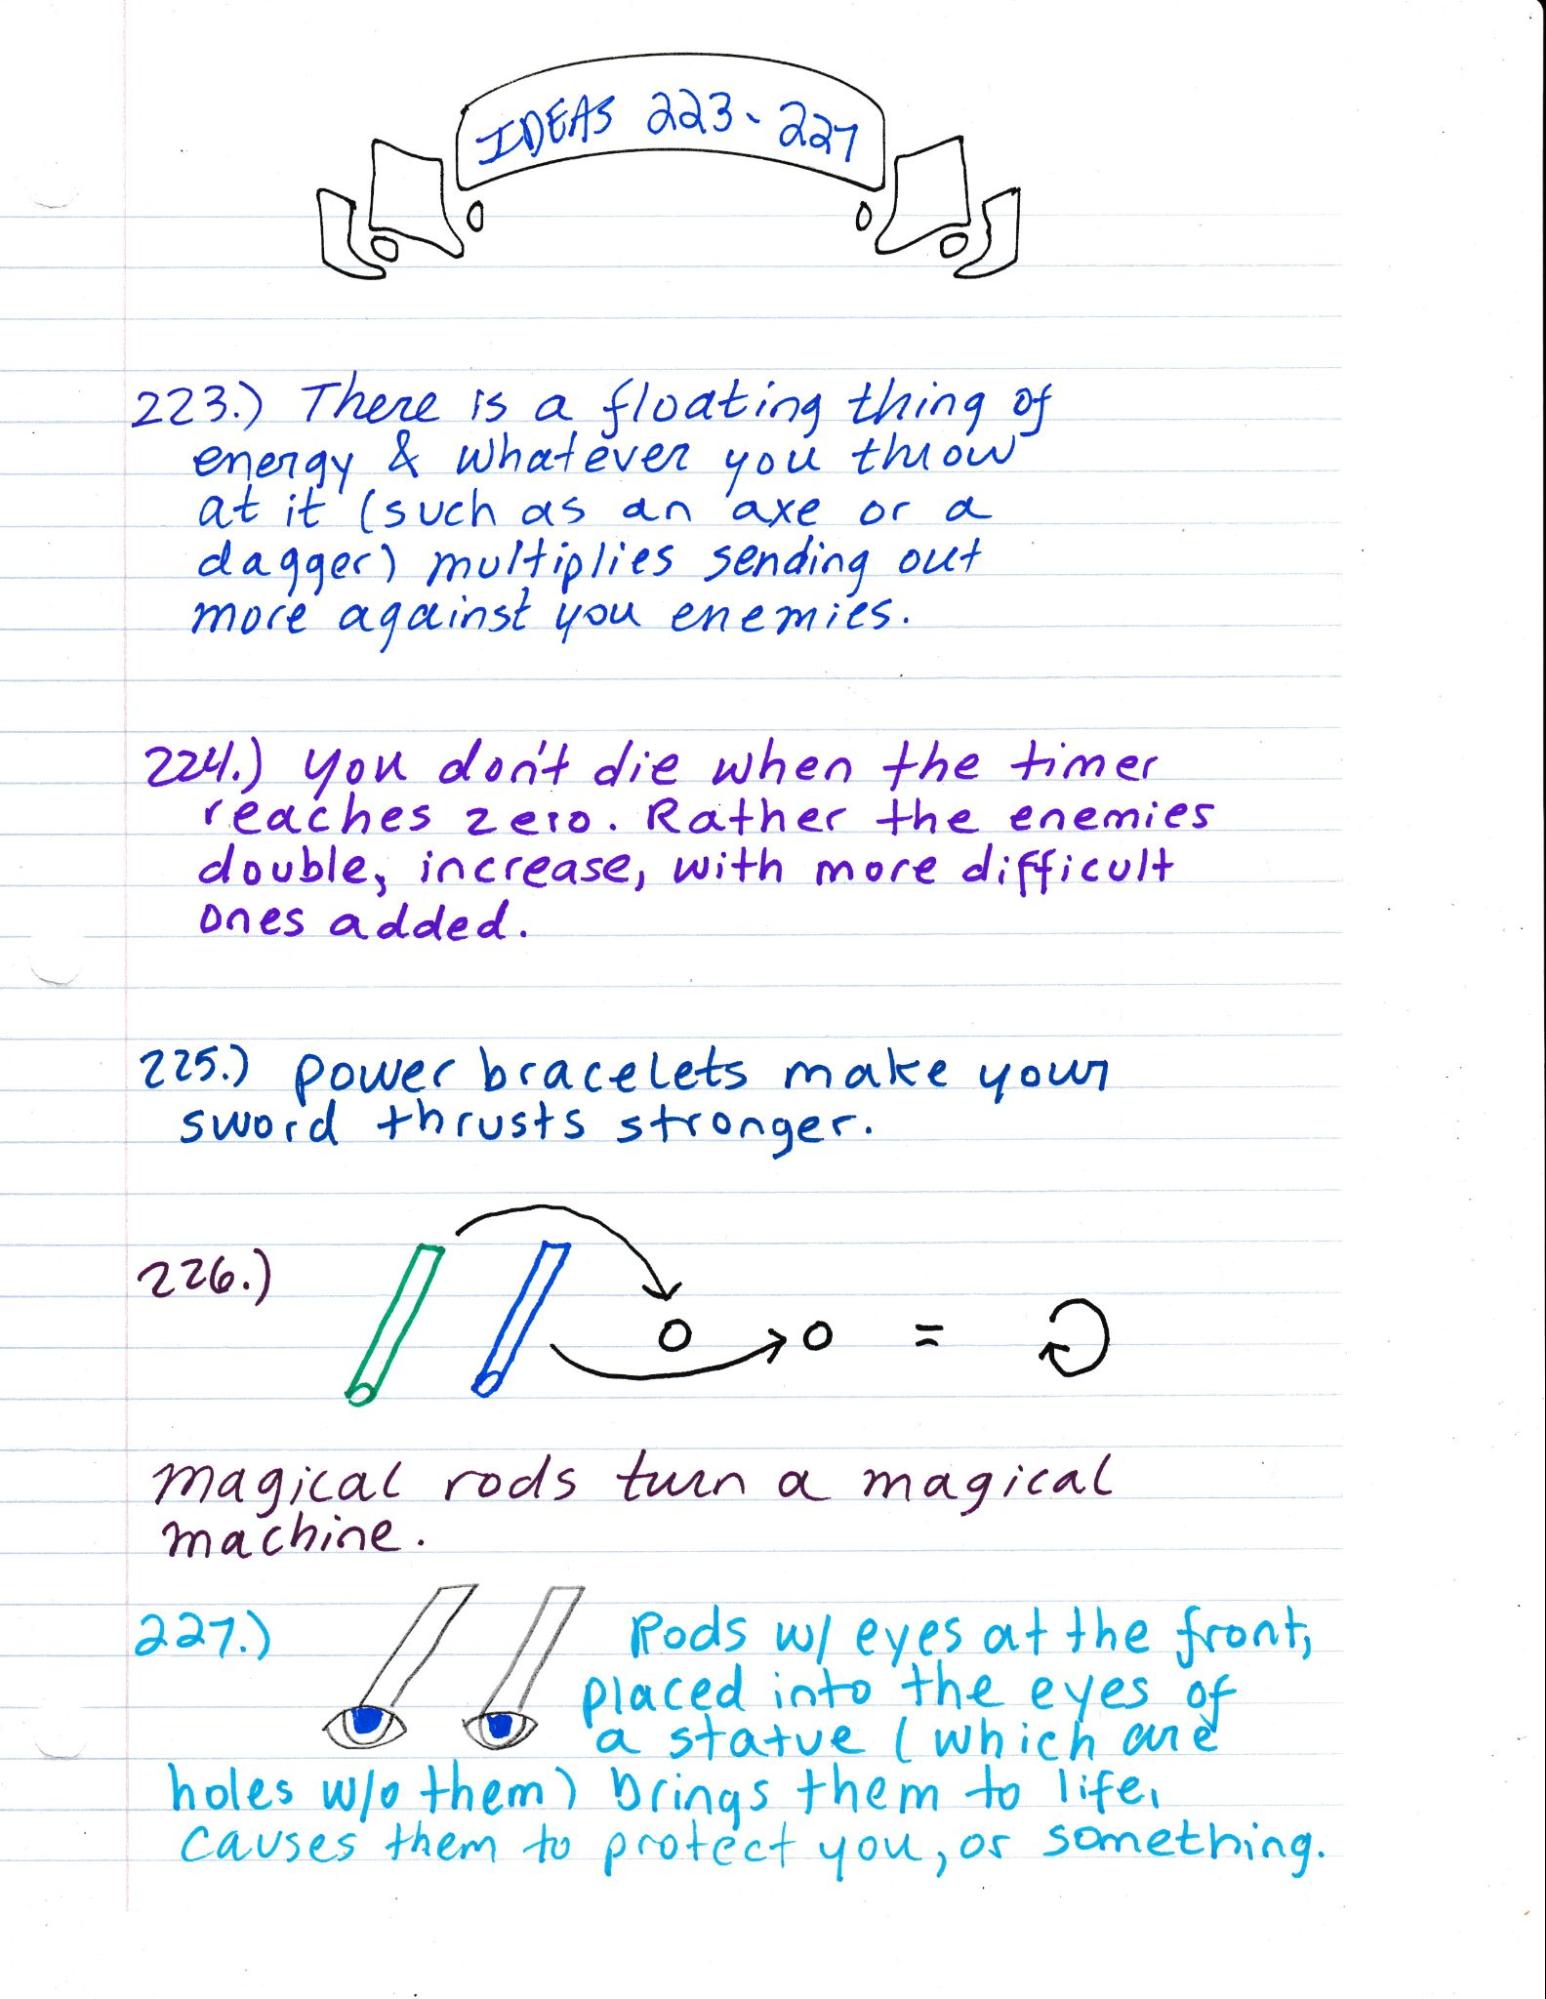 IDEAS 223-227
223.) There is a floating thing of
energy & whatever you throw
at it (such as an axe or a
dagger) multiplies sending out
more against you enemies.
224.) You don't die when the timer
reaches zero. Rather the enemies
double, increase, with more difficult
ones added.
225.) Power bracelets make your
sword thrusts stronger.
226.)
=
Magical rods turn a magical
machine.
227.)
Rods w/ eyes at the front,
placed into the eyes of
a statue (which are
holes w/o them) brings them to life,
causes them to protect you, or something.